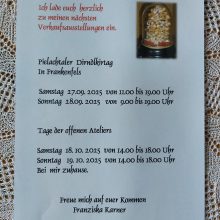 Ich lade euch herzlich
zu meinen nächsten
Verkaufsausstellungen ein.
Pielachtaler Dirndlkirtag
In Frankenfels
Samstag 27.09.2015 von 11.00 bis 19.00 Uhr
Sonntag 28.09.2015 von 9.00 bis 19.00 Uhr
Tage der offenen Ateliers
Samstag 18.10.2015 von 14.00 bis 18.00 Uhr
Sonntag 19.10.2015 von 14.00 bis 18.00 Uhr
Bei mir zuhause.
Freue mich auf euer Kommen
Franziska Karner